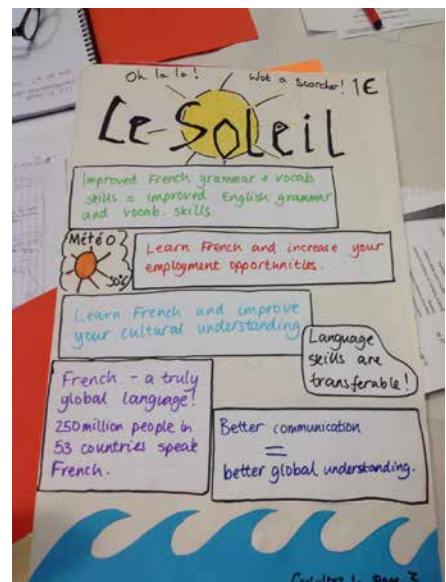 Oh la la! Wot a scorcher! 1€
Le Soleil
Improved French grammar & vocab
skills = improved English grammar
and vocab. skills
Météo
30°c
Learn French and increase your
employment opportunities.
Learn French and improve
your cultural understanding
Language
skills are
transferable!
French - a truly
global language!
250 million people in
53 countries speak
French.
Better communication
=
better global understanding.